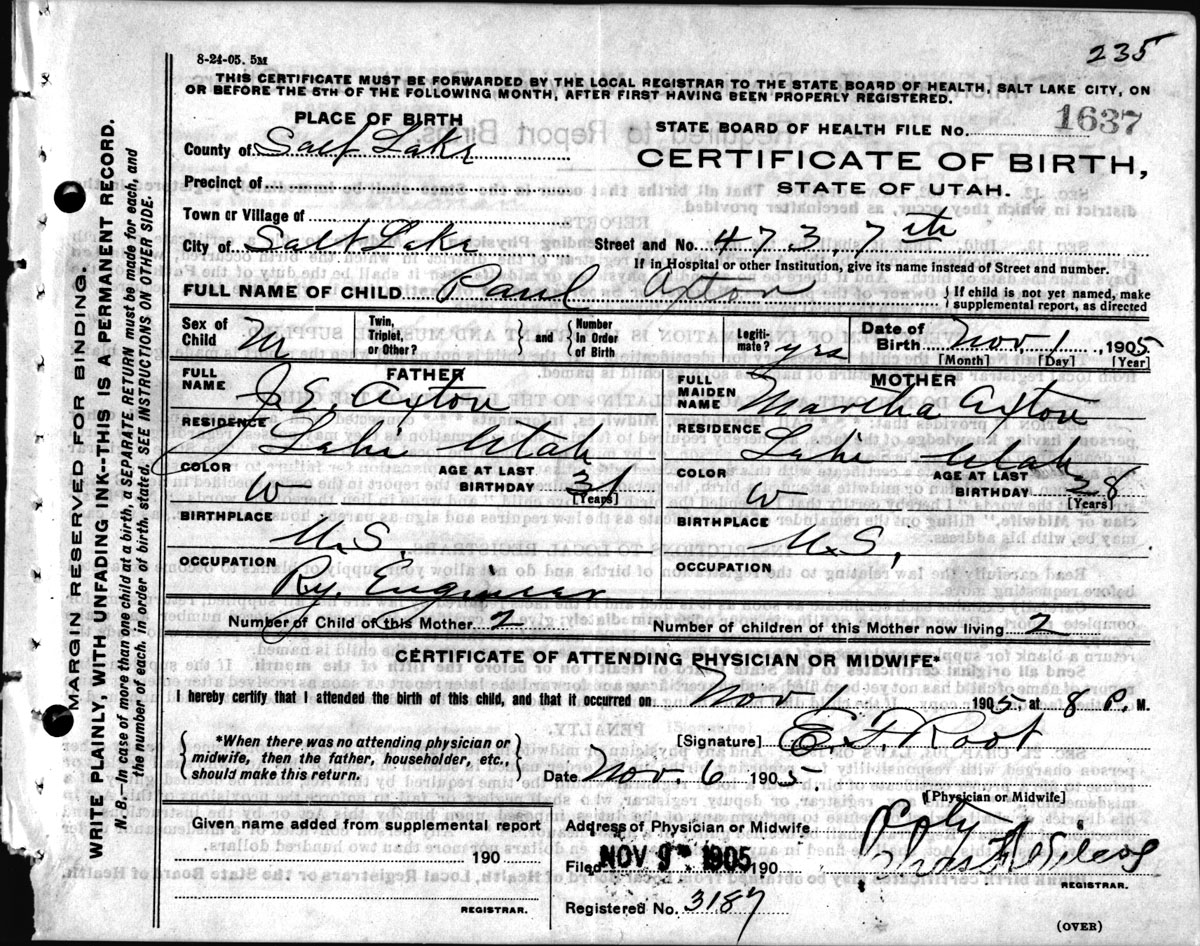 235
8-24-05. 5M
THIS CERTIFICATE MUST BE FORWARDED BY THE LOCAL REGISTRAR TO THE STATE BOARD OF HEALTH, SALT LAKE CITY, ON
OR BEFORE THE 5TH OF THE FOLLOWING MONTH, AFTER FIRST HAVING BEEN PROPERLY REGISTERED.
PLACE OF BIRTH
STATE BOARD OF HEALTH FILE NO. 1637
County of Salt Lake
CERTIFICATE OF BIRTH,
Precinct of
STATE OF UTAH.
Town or Village of
City of Salt Lake Street and No. 473, 7th
If in Hospital or other Institution, give its name instead of Street and number.
FULL NAME OF CHILD Paul Axton } If child is not yet named, make supplemental report, as directed
Sex of Child M
Twin, Triplet, or Other? } and { Number In Order of Birth
Legitimate? yes
Date of Birth Nov, 1, 1905
[Month] [Day] [Year]
FATHER
FULL NAME J. E. Axton
RESIDENCE Lake Utah
COLOR W
AGE AT LAST BIRTHDAY 31
[Years]
BIRTHPLACE U.S.
OCCUPATION Ry. Engineer
MOTHER
FULL MAIDEN NAME Martha Axton
RESIDENCE Lake Utah
COLOR W
AGE AT LAST BIRTHDAY 38
[Years]
BIRTHPLACE U.S.
OCCUPATION
Number of Child of this Mother 2 Number of children of this Mother now living 2
CERTIFICATE OF ATTENDING PHYSICIAN OR MIDWIFE*
I hereby certify that I attended the birth of this child, and that it occurred on Nov 1 1905, at 8 P. M.
{ *When there was no attending physician or
midwife, then the father, householder, etc.,
should make this return. }
[Signature] E. F. Root
Date Nov. 6 1905
[Physician or Midwife]
Given name added from supplemental report
190
REGISTRAR.
Address of Physician or Midwife
Filed NOV 9 1905 190
REGISTRAR.
Registered No. 3187
(OVER)
MARGIN RESERVED FOR BINDING.
WRITE PLAINLY, WITH UNFADING INK--THIS IS A PERMANENT RECORD.
N. B.—In case of more than one child at a birth, a SEPARATE RETURN must be made for each, and
the number of each, in order of birth, stated. SEE INSTRUCTIONS ON OTHER SIDE.